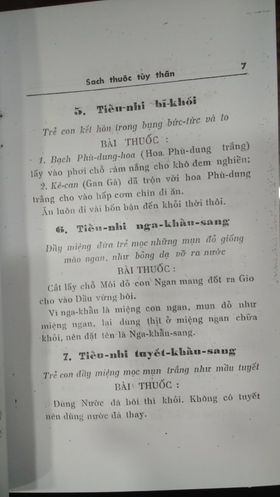 Sách thuốc tùy thân 7
5. Tiểu-nhi bĩ-khối
Trẻ con kết hòn trong bụng bức-tức và to
BÀI THUỐC :
1. Bạch Phù-dung-hoa (Hoa Phù-dung trắng)
lấy vào phơi chỗ râm nắng cho khô đem nghiền;
2. Kê-can (Gan Gà) đã trộn với hoa Phù-dung
trắng cho vào hấp cơm chín đi ăn.
Ăn luôn đi vài bốn bận đến khỏi thời thôi.
6. Tiểu-nhi nga-khẩu-sang
Đầy miệng đứa trẻ mọc những mụn đỏ giống
mào ngan, như bỏng dạ vỡ ra nước
BÀI THUỐC :
Cắt lấy chỗ Môi dỏ con Ngan mang đốt ra Gio
cho vào Dầu vừng bôi.
Vì nga-khẩu là miệng con ngan, mụn đỏ như
miệng ngan, lại dung thịt ở miệng ngan chữa
khỏi, nên đặt tên là Nga-khẩu-sang.
7. Tiểu-nhi tuyết-khẩu-sang
Trẻ con đầy miệng mọc mụn trắng như mầu tuyết
BÀI THUỐC :
Dùng Nước đá bôi thì khỏi. Không có tuyết
nên dùng nước đá thay.